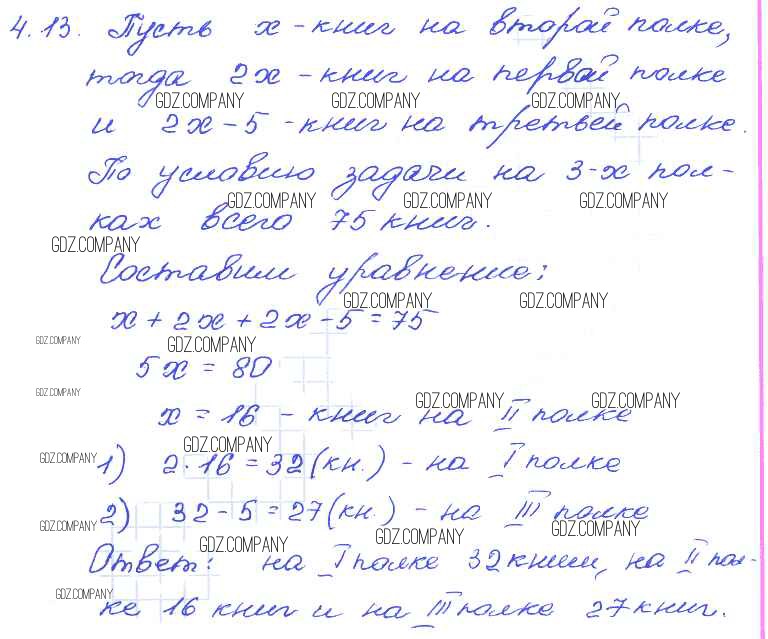 4.13. Пусть x - книг на второй полке,
тогда 2x - книг на первой полке
GDZ.COMPANY GDZ.COMPANY GDZ.COMPANY
и 2x - 5 - книг на третьей полке.
По условию задачи на 3-х пол-
GDZ.COMPANY GDZ.COMPANY GDZ.COMPANY
ках всего 75 книг.
GDZ.COMPANY
Составим уравнение:
GDZ.COMPANY GDZ.COMPANY
x + 2x + 2x - 5 = 75
GDZ.COMPANY GDZ.COMPANY
5x = 80
GDZ.COMPANY GDZ.COMPANY GDZ.COMPANY
x = 16 - книг на II полке
GDZ.COMPANY
GDZ.COMPANY 1) 2·16 = 32 (кн.) - на I полке
2) 32 - 5 = 27 (кн.) - на III полке
GDZ.COMPANY GDZ.COMPANY GDZ.COMPANY GDZ.COMPANY
Ответ: на I полке 32 книги, на II пол-
GDZ.COMPANY
ке 16 книг и на III полке 27 книг.